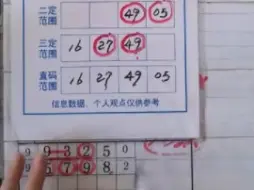 二定
范围 49 05
三定
范围 16 27 49
直码
范围 16 27 49 05
信息数据、个人观点仅供参考
9 9 3 2 5 0
6 7 9 8 2